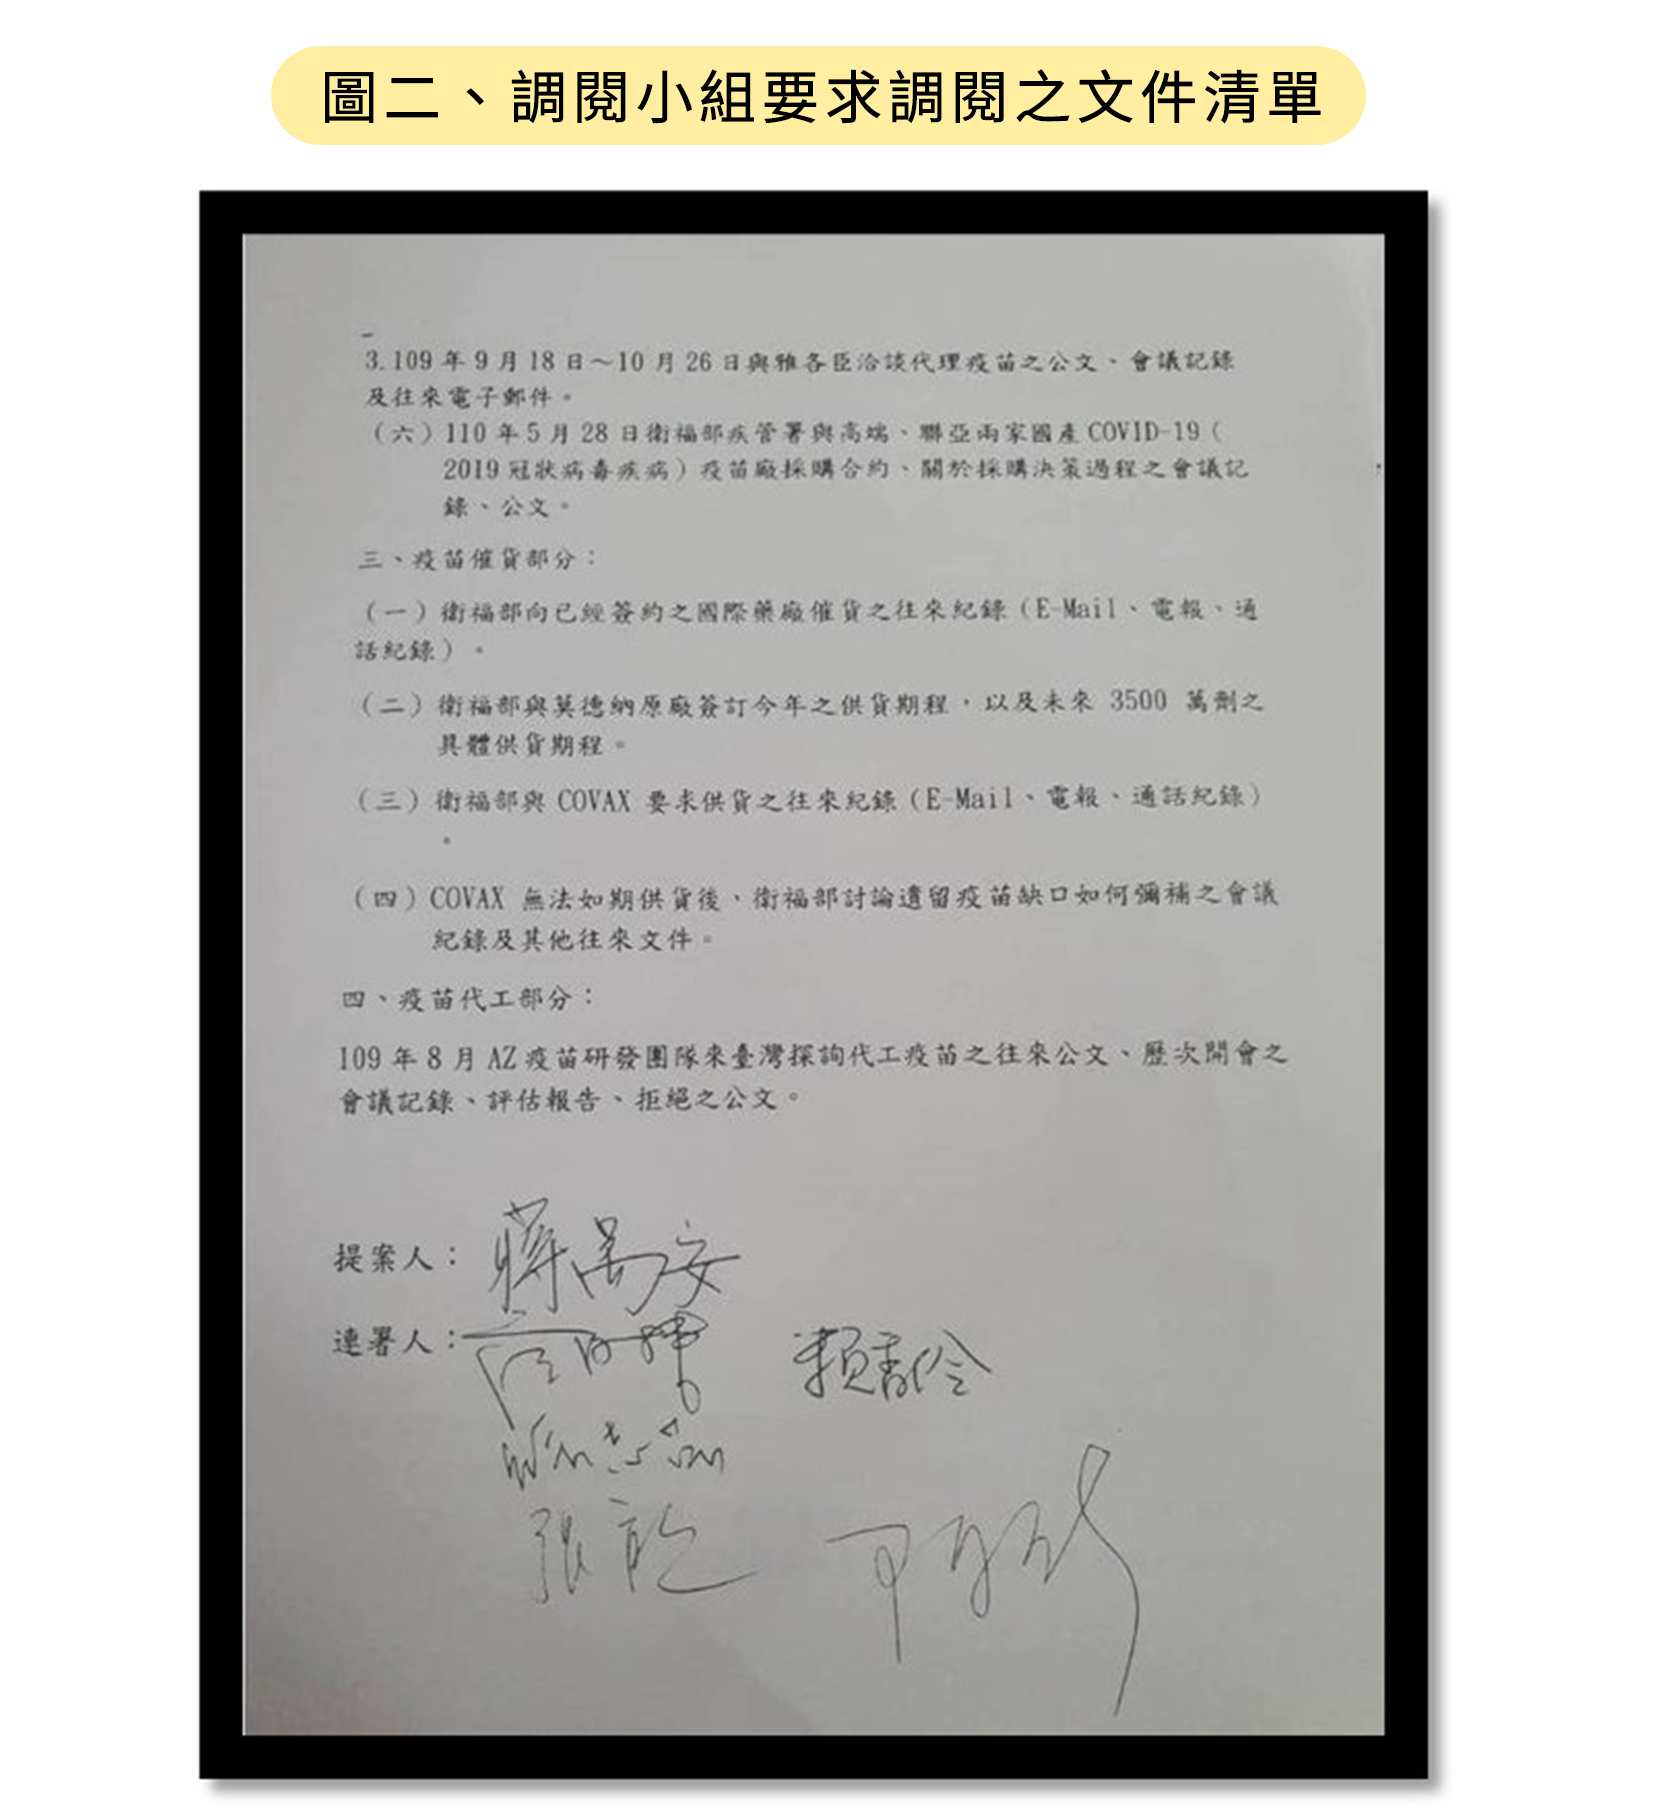 圖二、調閱小組要求調閱之文件清單
3.109年9月18日～10月26日與雅各臣洽談代理疫苗之公文、會議記錄
及往來電子郵件。
（六）110年5月28日衛福部疾管署與高端、聯亞兩家國產COVID-19（
2019冠狀病毒疾病）疫苗廠採購合約、關於採購決策過程之會議記
錄、公文。
三、疫苗催貨部分：
（一）衛福部向已經簽約之國際藥廠催貨之往來紀錄（E-Mail、電報、通
話紀錄）。
（二）衛福部與莫德納原廠簽訂今年之供貨期程，以及未來 3500 萬劑之
具體供貨期程。
（三）衛福部與 COVAX 要求供貨之往來紀錄（E-Mail、電報、通話紀錄）
。
（四）COVAX 無法如期供貨後，衛福部討論遺留疫苗缺口如何彌補之會議
紀錄及其他往來文件。
四、疫苗代工部分：
109年8月AZ疫苗研發團隊來臺灣探詢代工疫苗之往來公文、歷次開會之
會議記錄、評估報告、拒絕之公文。
提案人：蔣萬安
連署人：
賴香伶